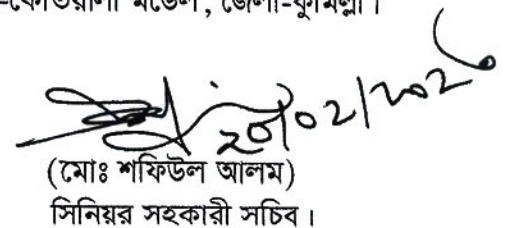 -কোতয়ালী মডেল, জেলা-কুমিল্লা।
20/02/202
(মোঃ শফিউল আলম)
সিনিয়র সহকারী সচিব।